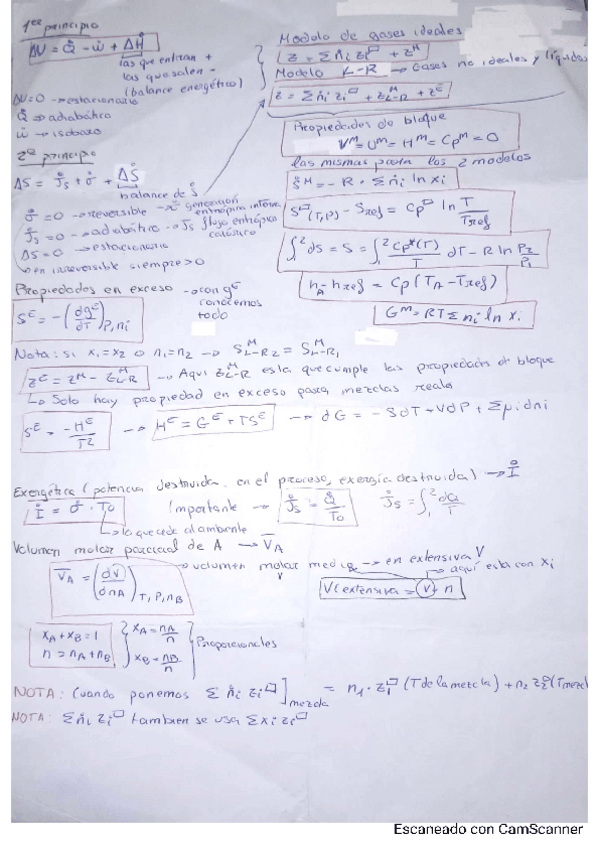 1er principio
ΔU = Q̊ - ẘ + ΔH̊
las que entran +
las que salen -
(balance energético)
ΔU=0 → estacionario
Q̊ → adiabático
ẘ → isobaro
2º principio
ΔS = J̊s + σ̊ + ΔS̊
balance de S̊
σ̊ = 0 → reversible → σ̊ generación entrópica interna
J̊s = 0 → adiabático → Js flujo entrópico calórico
ΔS = 0 → estacionario
en irreversible siempre > 0
Modelo de gases ideales
z = Σ ṅi zi□ + z^M
Modelo L-R → Gases no ideales y líquidos
z = Σ ṅi zi□ + z^M_L-R + z^E
Propiedades de bloque
V^M = U^M = H^M = Cp^M = 0
las mismas para los 2 modelos
S̊^M = - R · Σ ṅi ln xi
S□(T,P) - Sref = Cp□ ln T/Tref
∫₁² dS = S = ∫₁² Cp*(T)/T dT - R ln P2/P1
hA - href = Cp (TA - Tref)
G^M = RT Σ ni ln xi
Propiedades en exceso → con g^E conocemos todo
S^E = - (dg^E/dT) P, ni
Nota: si x1 = x2 o n1 = n2 → S^M_L-R2 = S^M_L-R1
z^E = z^M - z^M_L-R → Aquí z^M_L-R es la que cumple las propiedades de bloque
↳ Solo hay propiedad en exceso para mezclas reales
S^E = -H^E/T2 → H^E = G^E + TS^E → dG = -SdT + VdP + Σμi dni
Exergética (potencia destruida en el proceso, exergía destruida) → I̊
I̊ = σ̊ · T0 Importante → J̊s = Q̊/T0 J̊s = ∫₁² dQ/T
↳ la que cede al ambiente
Volumen molar parcial de A → V̄A
→ volumen molar medio → en extensiva V
v → aquí esta con xi
V̄A = (dV/dnA) T, P, nB
V(extensiva) = v · n
xA + xB = 1
n = nA + nB
xA = nA/n
xB = nB/n
Proporcionales
NOTA: Cuando ponemos Σ ṅi zi□ ]mezcla = n1 · z1□ (T de la mezcla) + n2 z2□ (Tmezcla
NOTA: Σ ṅi zi□ tambien se usa Σ xi zi□
Escaneado con CamScanner